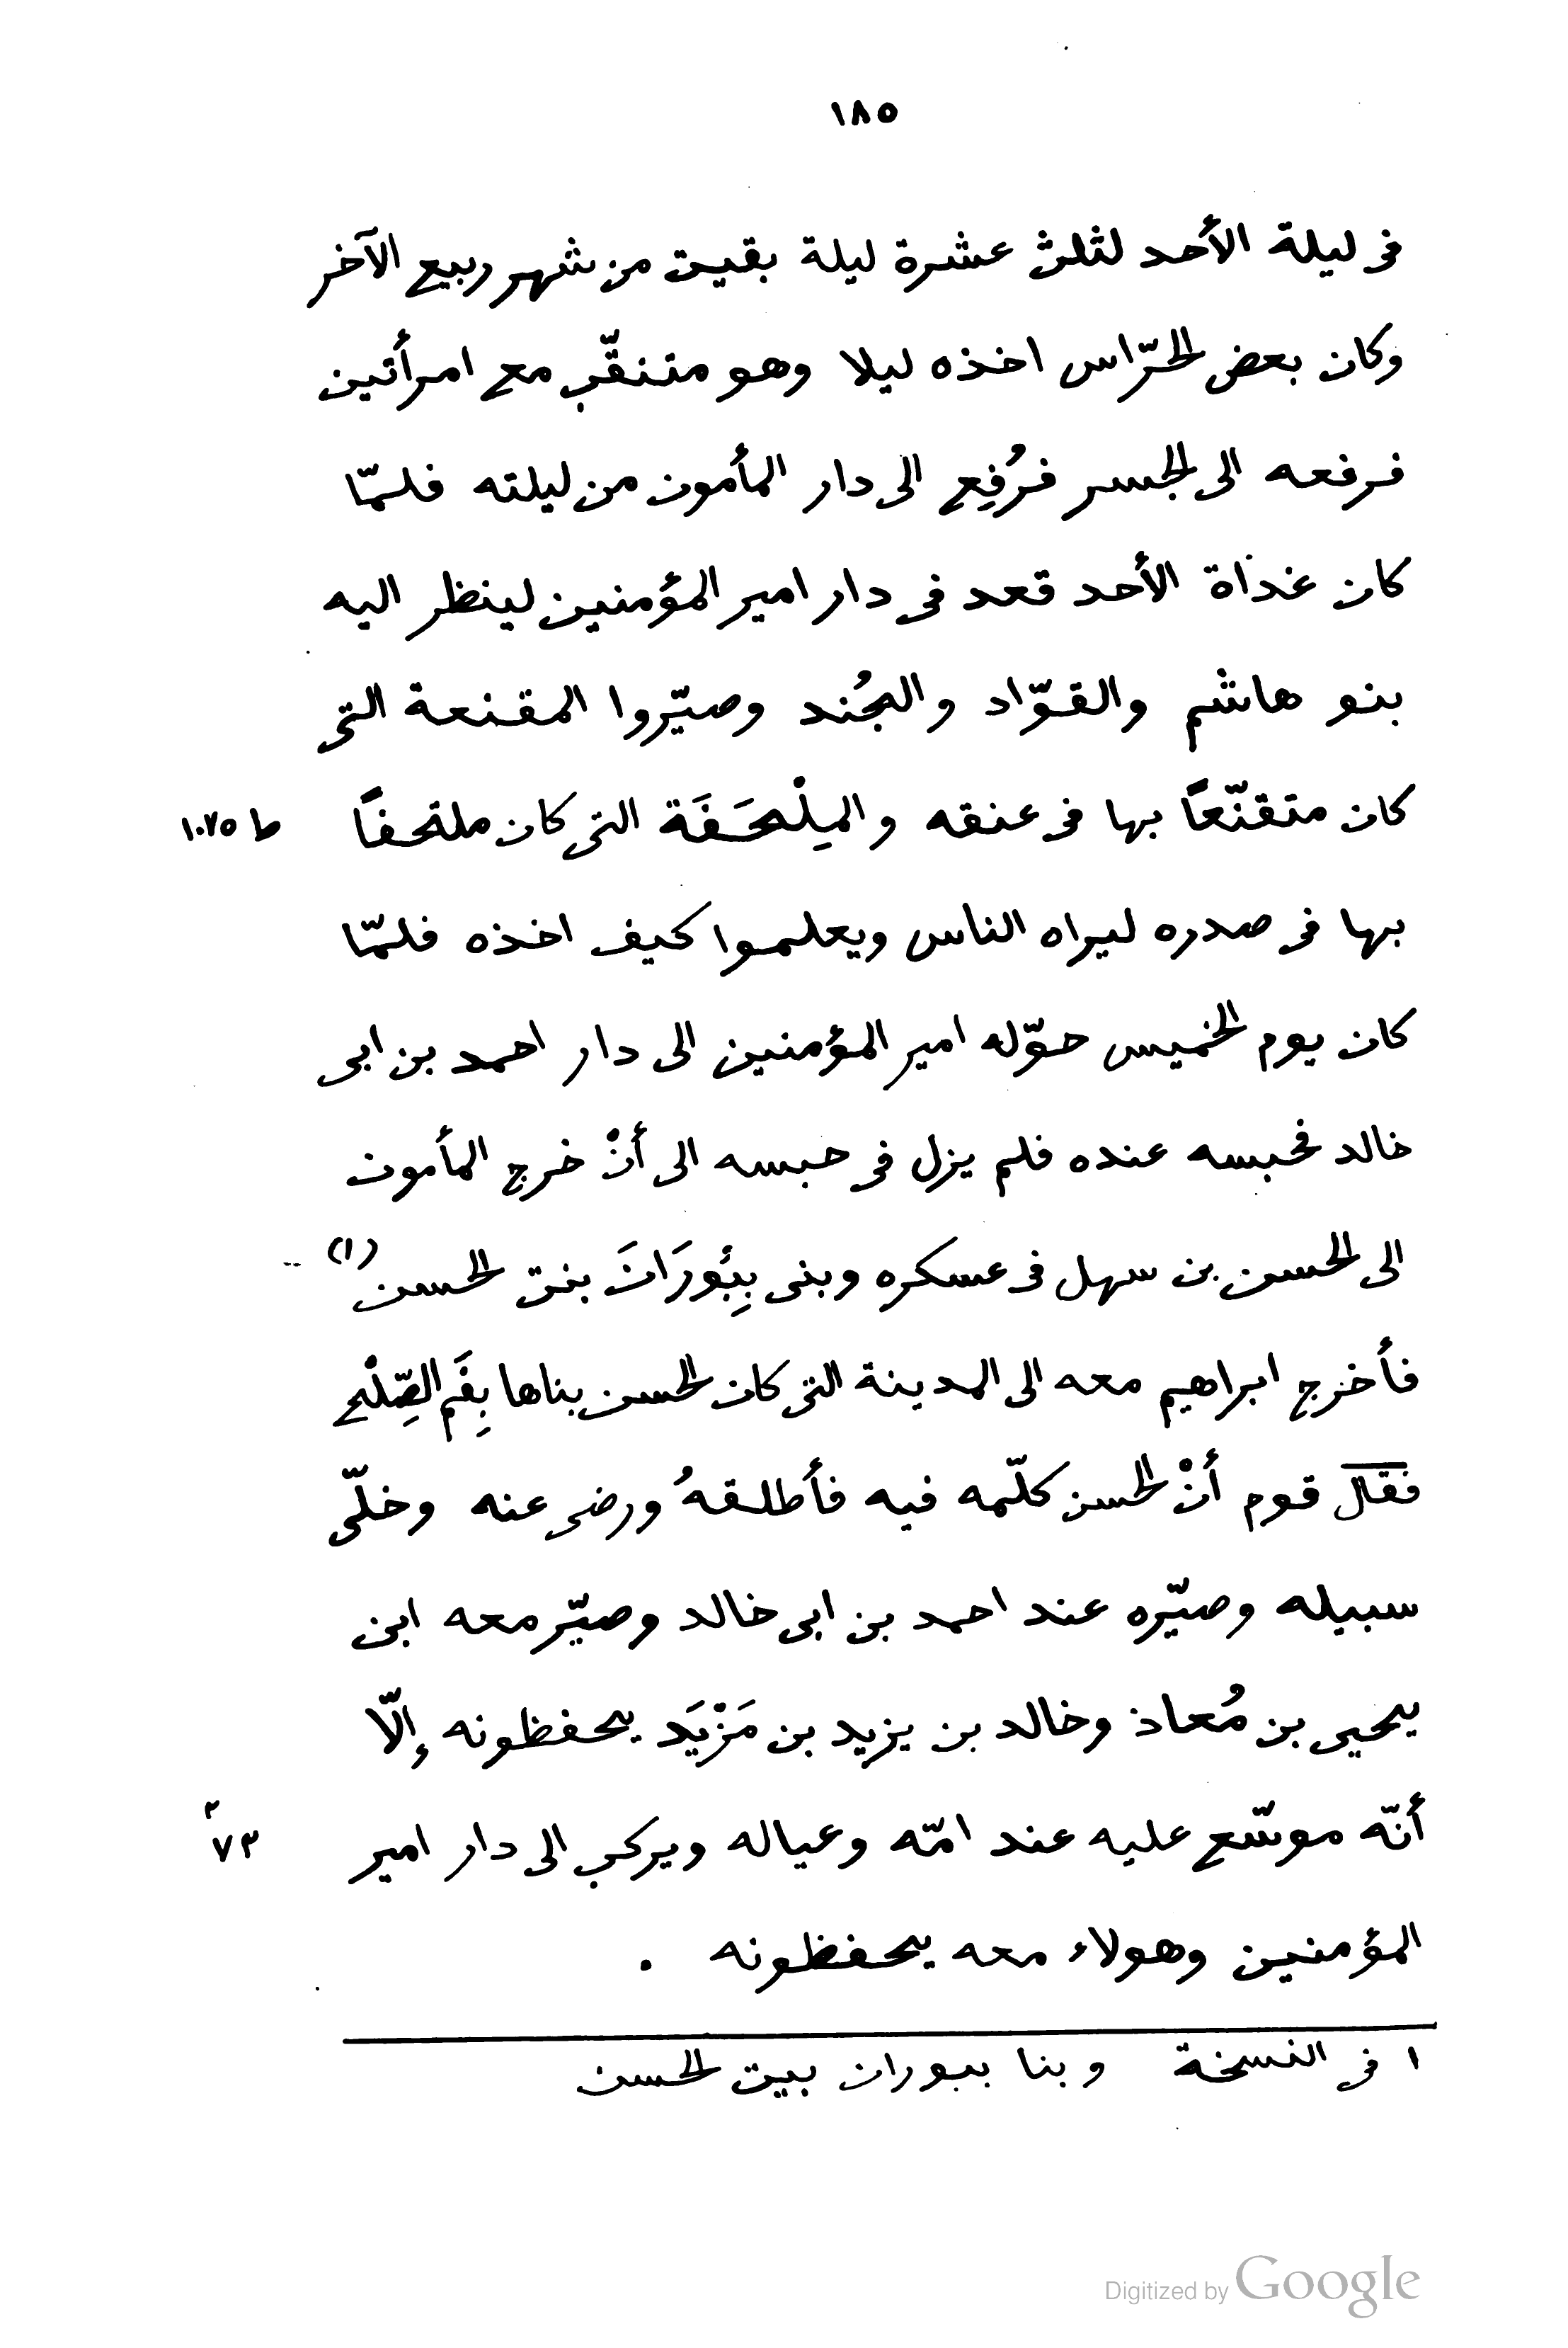 ١٨٥
فى ليلة الأحد لثلث عشرة ليلة بقيت من شهر ربيع الآخر
وكان بعض الحرّاس اخذه ليلا وهو متنقّب مع امرأتين
فرفعه الى الجسر فرُفِع الى دار المأمون من ليلته فلمّا
كان غداة الأحد قعد فى دار امير المؤمنين لينظر اليه
بنو هاشم والقوّاد والجُند وصيّروا المقنعة التى
كان متقنّعًا بها فى عنقه والمِلْحَفَة التى كان ملتحفًا ط ١٠٧٥
بها فى صدره ليراه الناس ويعلموا كيف اخذه فلمّا
كان يوم الخميس حوّله امير المؤمنين الى دار احمد بن ابى
خالد فحبسه عنده فلم يزل فى حبسه الى أنْ خرج المأمون
الى الحسن بن سهل فى عسكره وبنى بِبُورَانَ بنت الحسن (١)
فأخرج ابراهيم معه الى المدينة التى كان الحسن بناها بِفَم الصِّلْح
فقال قوم أنْ الحسن كلّمه فيه فأطلقهُ ورضى عنه وخلّى
سبيله وصيّره عند احمد بن ابى خالد وصيّر معه ابن
يحيى بن مُعاذ وخالد بن يزيد بن مَزْيَد يحفظونه إلّا
أنّه موسّع عليه عند امّه وعياله ويركب الى دار امير ٧٣
المؤمنين وهولاء معه يحفظونه .
١ فى النسخة وبنا ببوران بيت الحسن
Digitized by Google